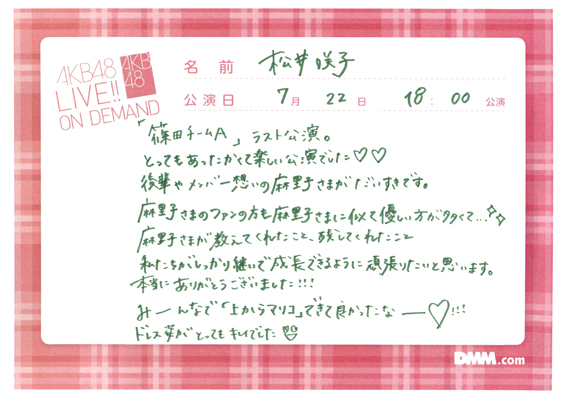 AKB48
LIVE!!
ON DEMAND
AKB
48
名前 松井咲子
公演日 7月 22日 18:00 公演
「篠田チームA」ラスト公演。
とってもあったかくて楽しい公演でした♡♡
後輩やメンバー想いの麻里子さまがだいすきです。
麻里子さまのファンの方も麻里子さまに似て優しい方が多くて...
麻里子さまが教えてくれたこと、残してくれたこと
私たちがしっかり継いで成長できるように頑張りたいと思います。
本当にありがとうございました!!!
みーんなで「上からマリコ」できて良かったなー♡!!!
ドレス姿がとってもキレイでした
DMM.com